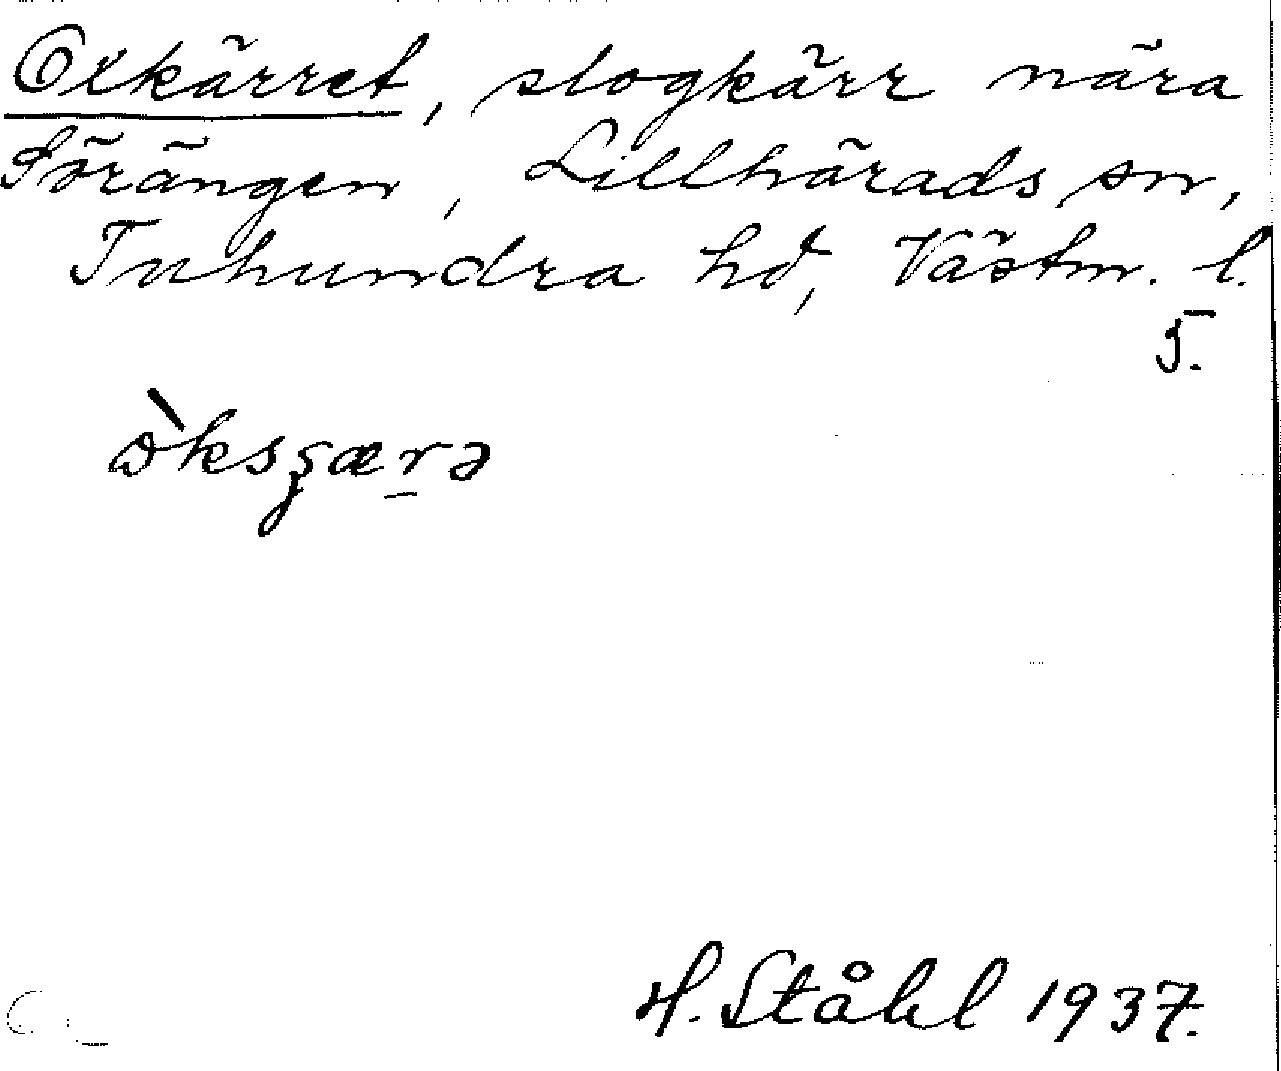 Oxkärret, slogkärr nära
Sörängen, Lillhärads sn,
Tuhundra hd, Västm. l.
5.
H. Ståhl 1937.